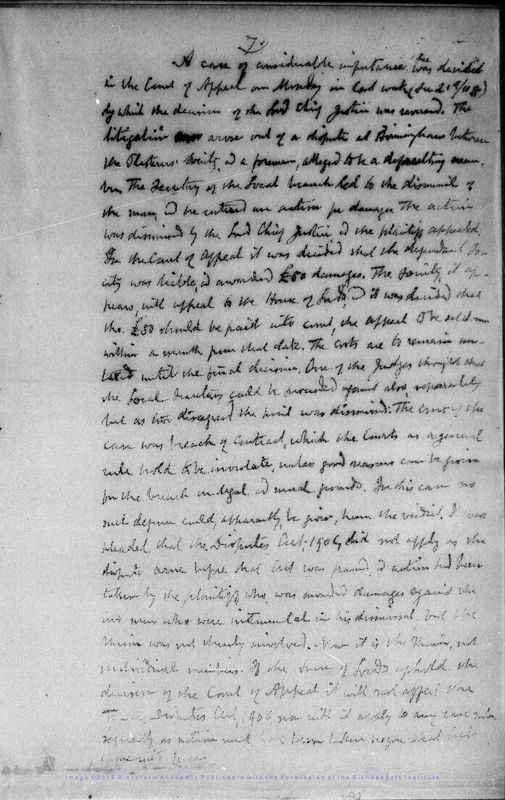 7.
A case of considerable importance was decided
in the Court of Appeal on Monday in last week
by which the decision of the Lord Chief Justice was reversed. The
litigation arose out of a dispute at Birmingham between
the Plasterers' Society, & a foreman, alleged to be a defaulting mem-
ber. The Secretary of the Local branch led to the dismissal of
the man, & he entered an action for damages. The action
was dismissed by the Lord Chief Justice, & the plaintiff appealed.
In the Court of Appeal it was decided that the defendant So-
ciety was liable, & awarded £50 damages. The Society, it ap-
pears, will appeal to the House of Lords, & it was decided that
the £50 should be paid into court, the appeal to be set down
within a month from that date. The costs are to remain un-
taxed until the final decision. One of the Judges thought that
the Local Secretary could be proceeded against also, separately
but as two disagreed the point was dismissed. The crux of the
case was breach of contract, which the Courts as a general
rule hold to be inviolate, unless good reasons can be given
for the breach on legal & moral grounds. In this case no
such defence could, apparently, be given, hence the verdict. It was
pleaded that the Disputes Act, 1906, did not apply as the
dispute arose before that Act was passed, & action had been
taken by the plaintiff, who was awarded damages against the
men who were instrumental in his dismissal, but the
Union was not directly involved. Now it is the Union, not
individual members. If the House of Lords uphold the
decision of the Court of Appeal it will not affect the
Trades Disputes Act, 1906, nor will it apply to any case
as action must have been taken before that Act
Image ©2013 Microform Academic Publishers with the Permission of the Bishopsgate Institute